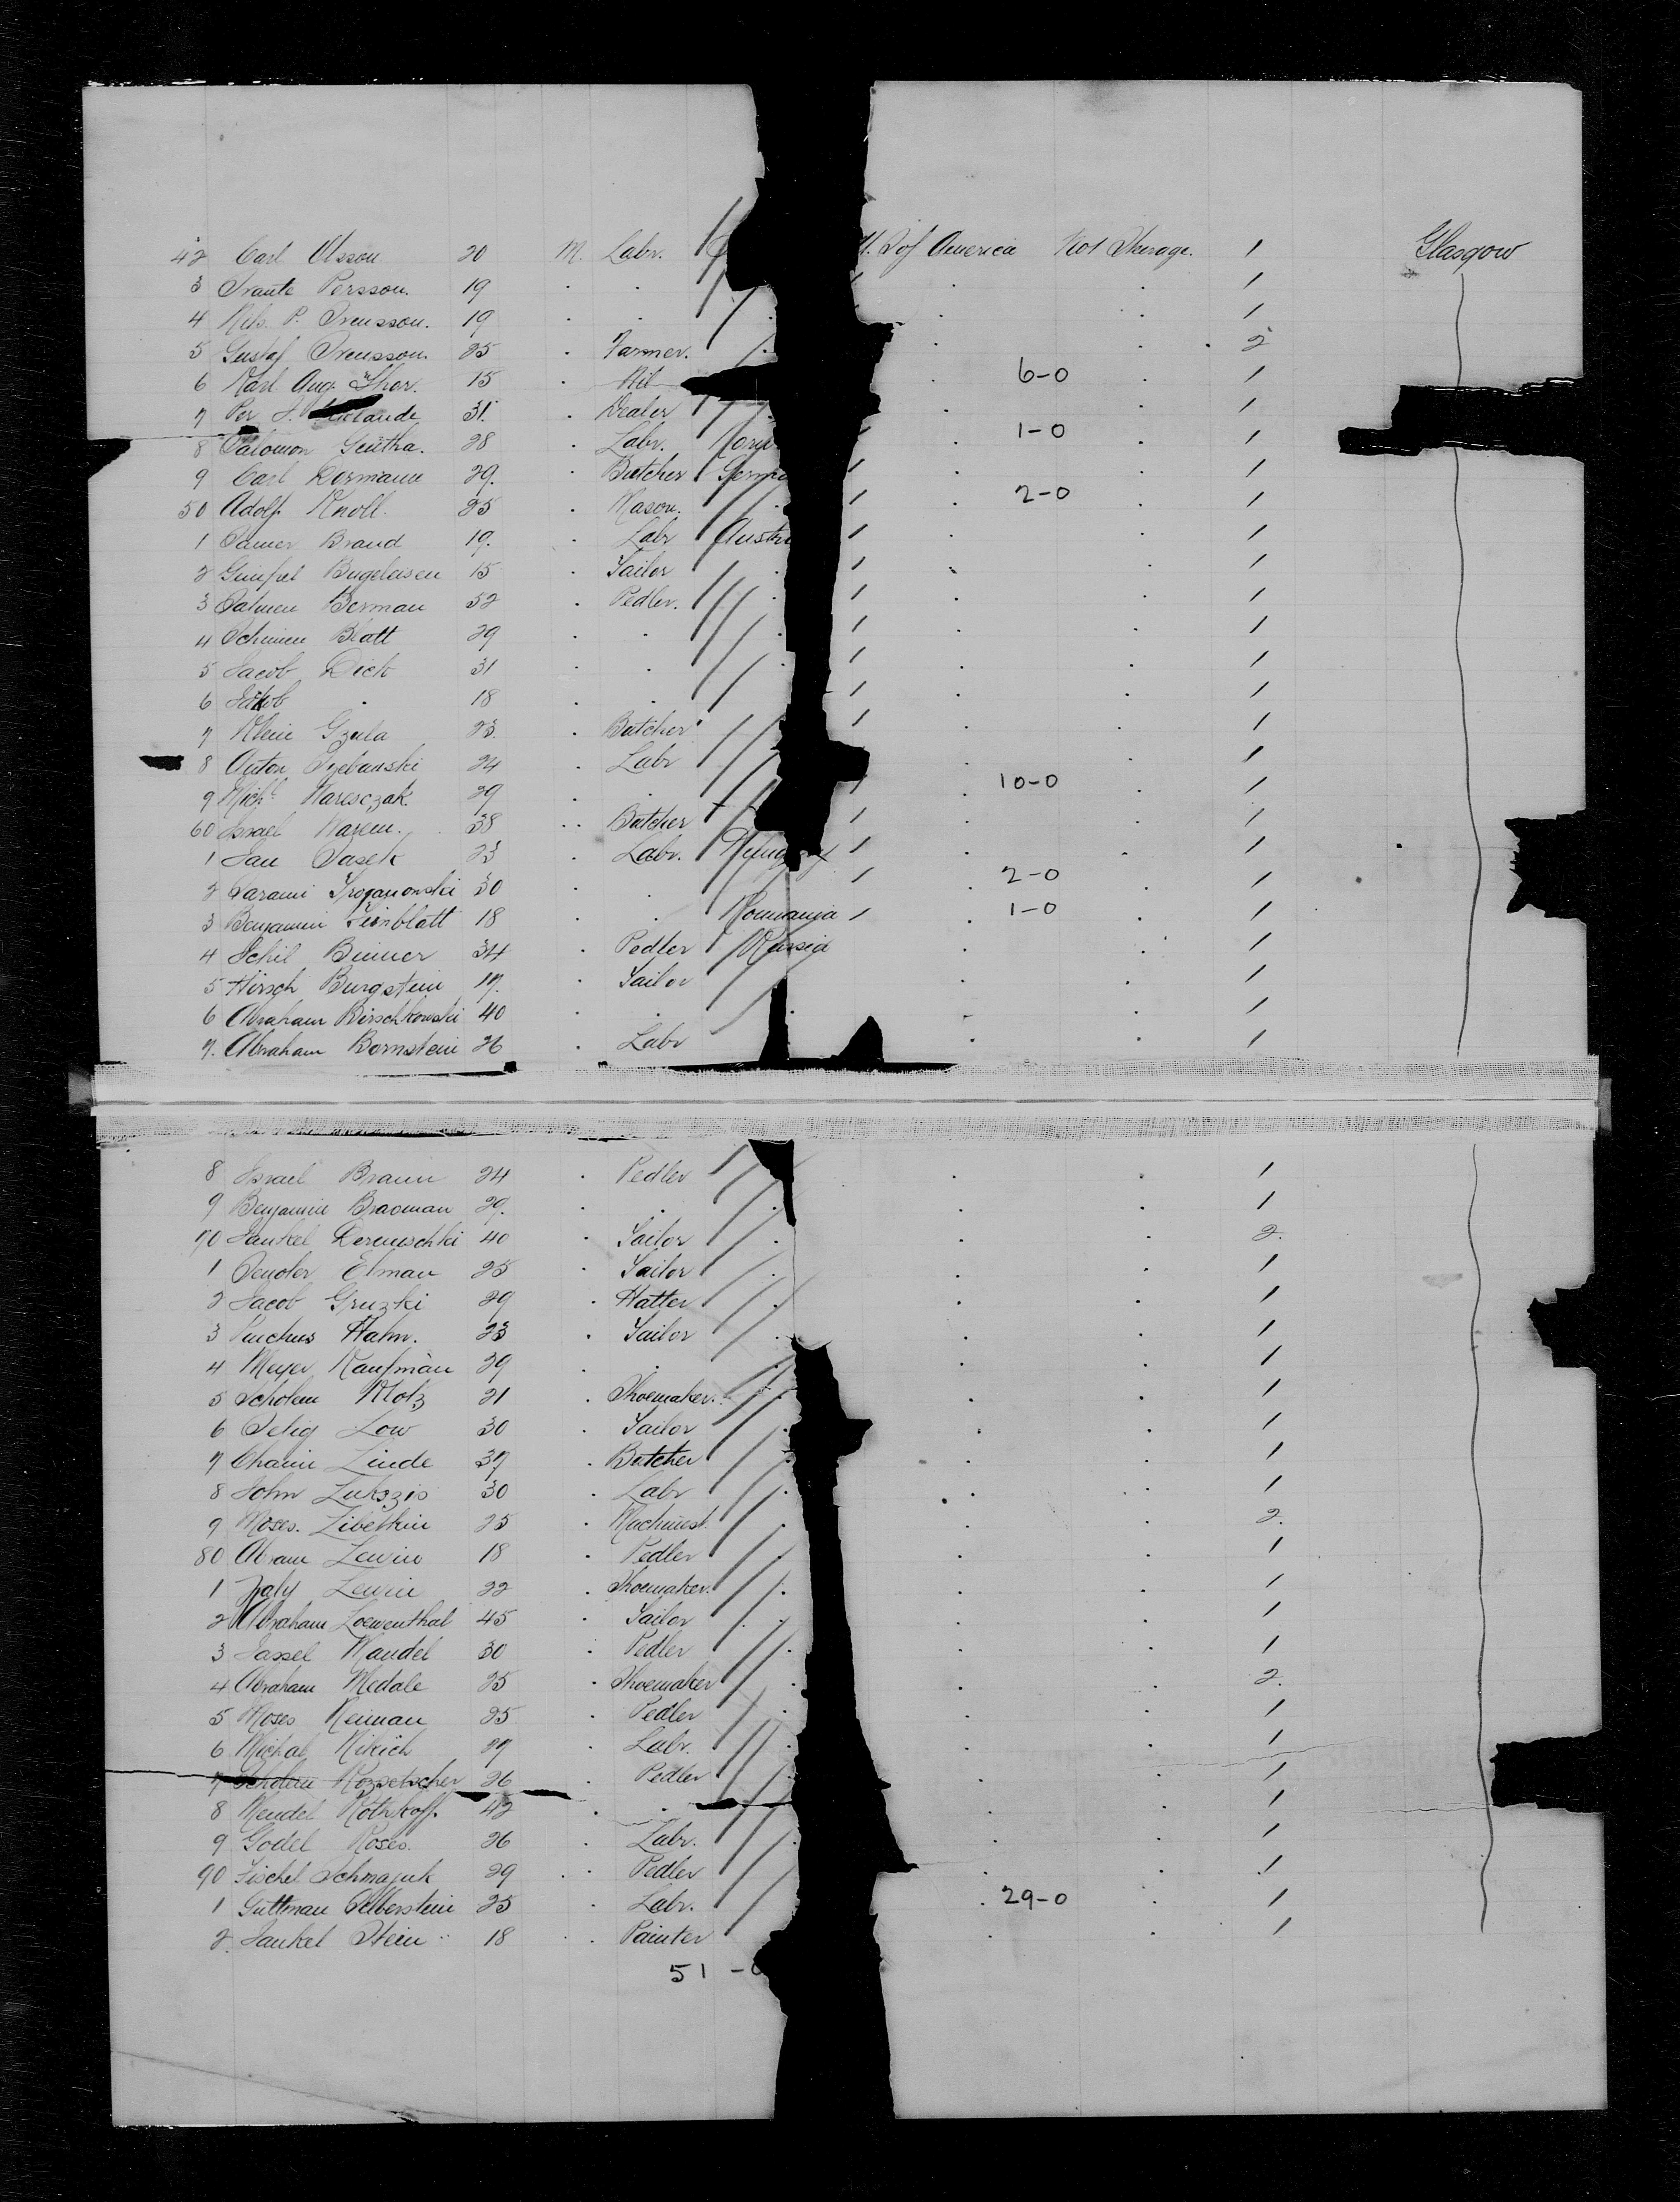 42 Carl Olsson 20 M. Labr. U. S of America Not Sterage. 1 Glasgow
3 Svante Persson. 19 . . . . 1
4 Nils. P. Svensson. 19 . . . . 1
5 Gustaf Svensson. 25 . Farmer. . . 2
6 Karl Aug. Thor. 15 . Nil . 6-0 . 1
7 Per J. 31. . Dealer . . 1
8 Salomon Gentha. 28 . Labr. . 1-0 . 1
9 Carl Dormann 29. . Butcher Germa . . 1
50 Adolf Knoll. 25 . Mason. . 2-0 . 1
1 Samer Brand 19. . Labr Austri . . 1
2 Gimpel Bugeleisen 15 . Tailor . . 1
3 Salmen Berman 52 . Pedler. . . 1
4 Schimen Blatt 29 . . . . 1
5 Jacob Dick 31 . . . . 1
6 Jakob . 18 . . . . 1
7 Klein Gzula 23. . Butcher . . 1
8 Anton 24 . Labr . . 1
9 Michl Maresczak. 29 . . 10-0 . 1
60 Israel Mazem. 38 . Butcher . . 1
1 Jan Pasek 23 . Labr. Hungary . . 1
2 Trojanowski 30 . . . 2-0 . 1
3 Benjamin Feinblatt 18 . . Roumania 1-0 . 1
4 Schil Binner 34 . Pedler Russia . . 1
5 Hirsch Burgstein 17. . Tailor . . 1
6 Abraham Birschkowski 40 . . . . . 1
7. Abraham Bornstein 26 . Labr . . 1
8 Israel Braun 24 . Pedler . . 1
9 Benjamin Bracman 29. . . . . . 1
70 Jankel Derenschki 40 . Tailor . . . 2.
1 Sender Elman 25 . Tailor . . . 1
2 Jacob Gruzki 29 . Hatter . . . 1
3 Pinchus Hahn. 23 . Tailor . . . 1
4 Meyer Kaufman 29 . . . . . 1
5 Scholem Klotz 21 . Shoemaker. . . . 1
6 Selig Low 30 . Tailor . . . 1
7 Chaim Linde 37 . Butcher . . 1
8 John Lukszis 30 . Labr . . . 1
9 Moses. Libetkin 25 . Machinist. . . . 2.
80 Abram Lewin 18 . Pedler . . . 1
1 Lewin 22 . Shoemaker. . . . 1
2 Abraham Loewenthal 45 . Tailor . . . 1
3 Jassel Mandel 30 . Pedler . . . 1
4 Abraham Medale 25 . Shoemaker . . . 2.
5 Moses Neiman 25 . Pedler . . . 1
6 Michal Nikich 27 . Labr. . . . 1
7 Scholem Rozsetscher 26 . Pedler . . 1
8 Mendel Rothkoff. 42 . . . . 1
9 Godel Roses. 26 . Labr. . . . 1
90 Fischel Schmajuk 29 . Pedler . . 1
1 Guttman Silberstein 25 . Labr. . 29-0 . 1
2. Jankel Stein 18 . Painter . . 1
51 -0